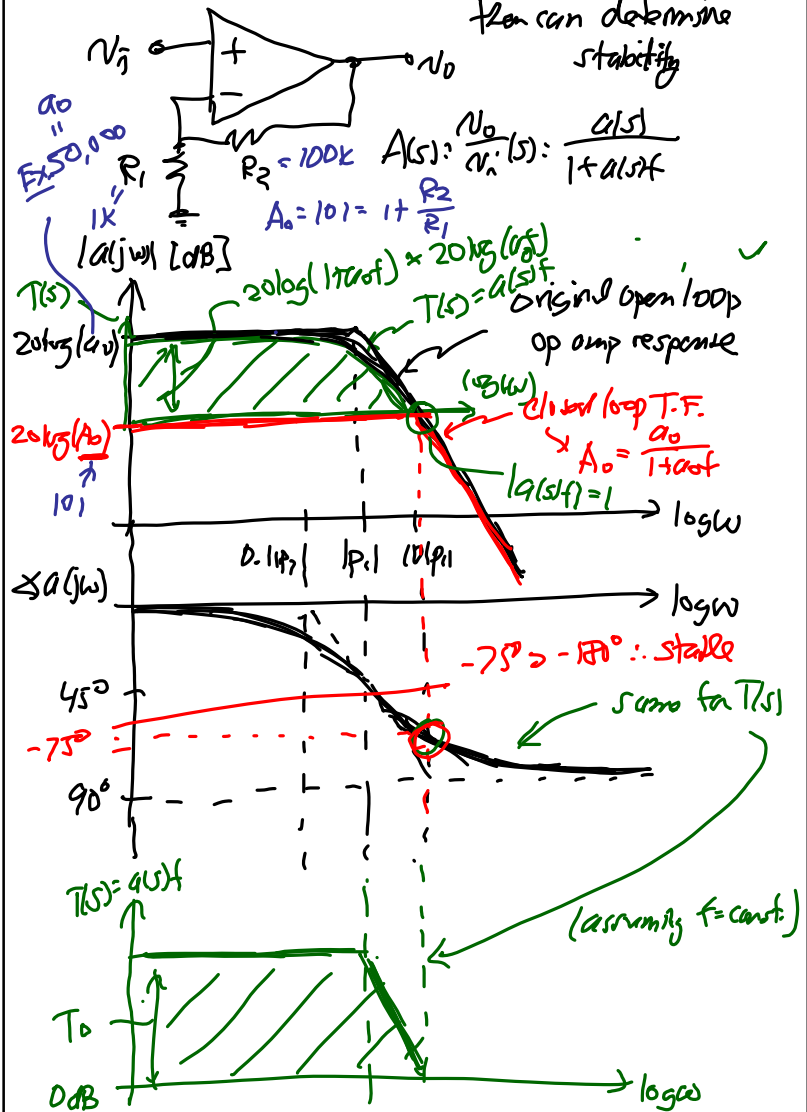 then can determine
stability
+
−
N_i
N_0
a_0
"
Ex. 50,000
R_1
"
1K
R_2 = 100K
A(s) = N_0/N_i (s) = a(s)/(1+a(s)f)
A_0 = 101 = 1 + R_2/R_1
|a(jω)| [dB]
T(s)
20log(1+a_0f) ≈ 20log(a_0f)
T(s) = a(s)f
original open loop
op amp response
20log(a_0)
log(ω)
closed loop T.F.
A_0 = a_0/(1+a_0f)
20log(A_0)
101
|a(s)f| = 1
logω
0.1|p_1|
|p_1|
10|p_1|
∡a(jω)
logω
-75° > -180° ∴ stable
45°
same for T(s)
-75°
90°
T(s) = a(s)f
(assuming f = const.)
T_0
0dB
logω